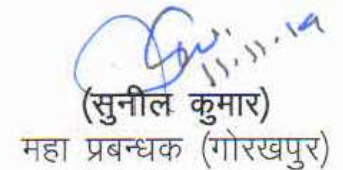 11.11.19
(सुनील कुमार)
महा प्रबन्धक (गोरखपुर)